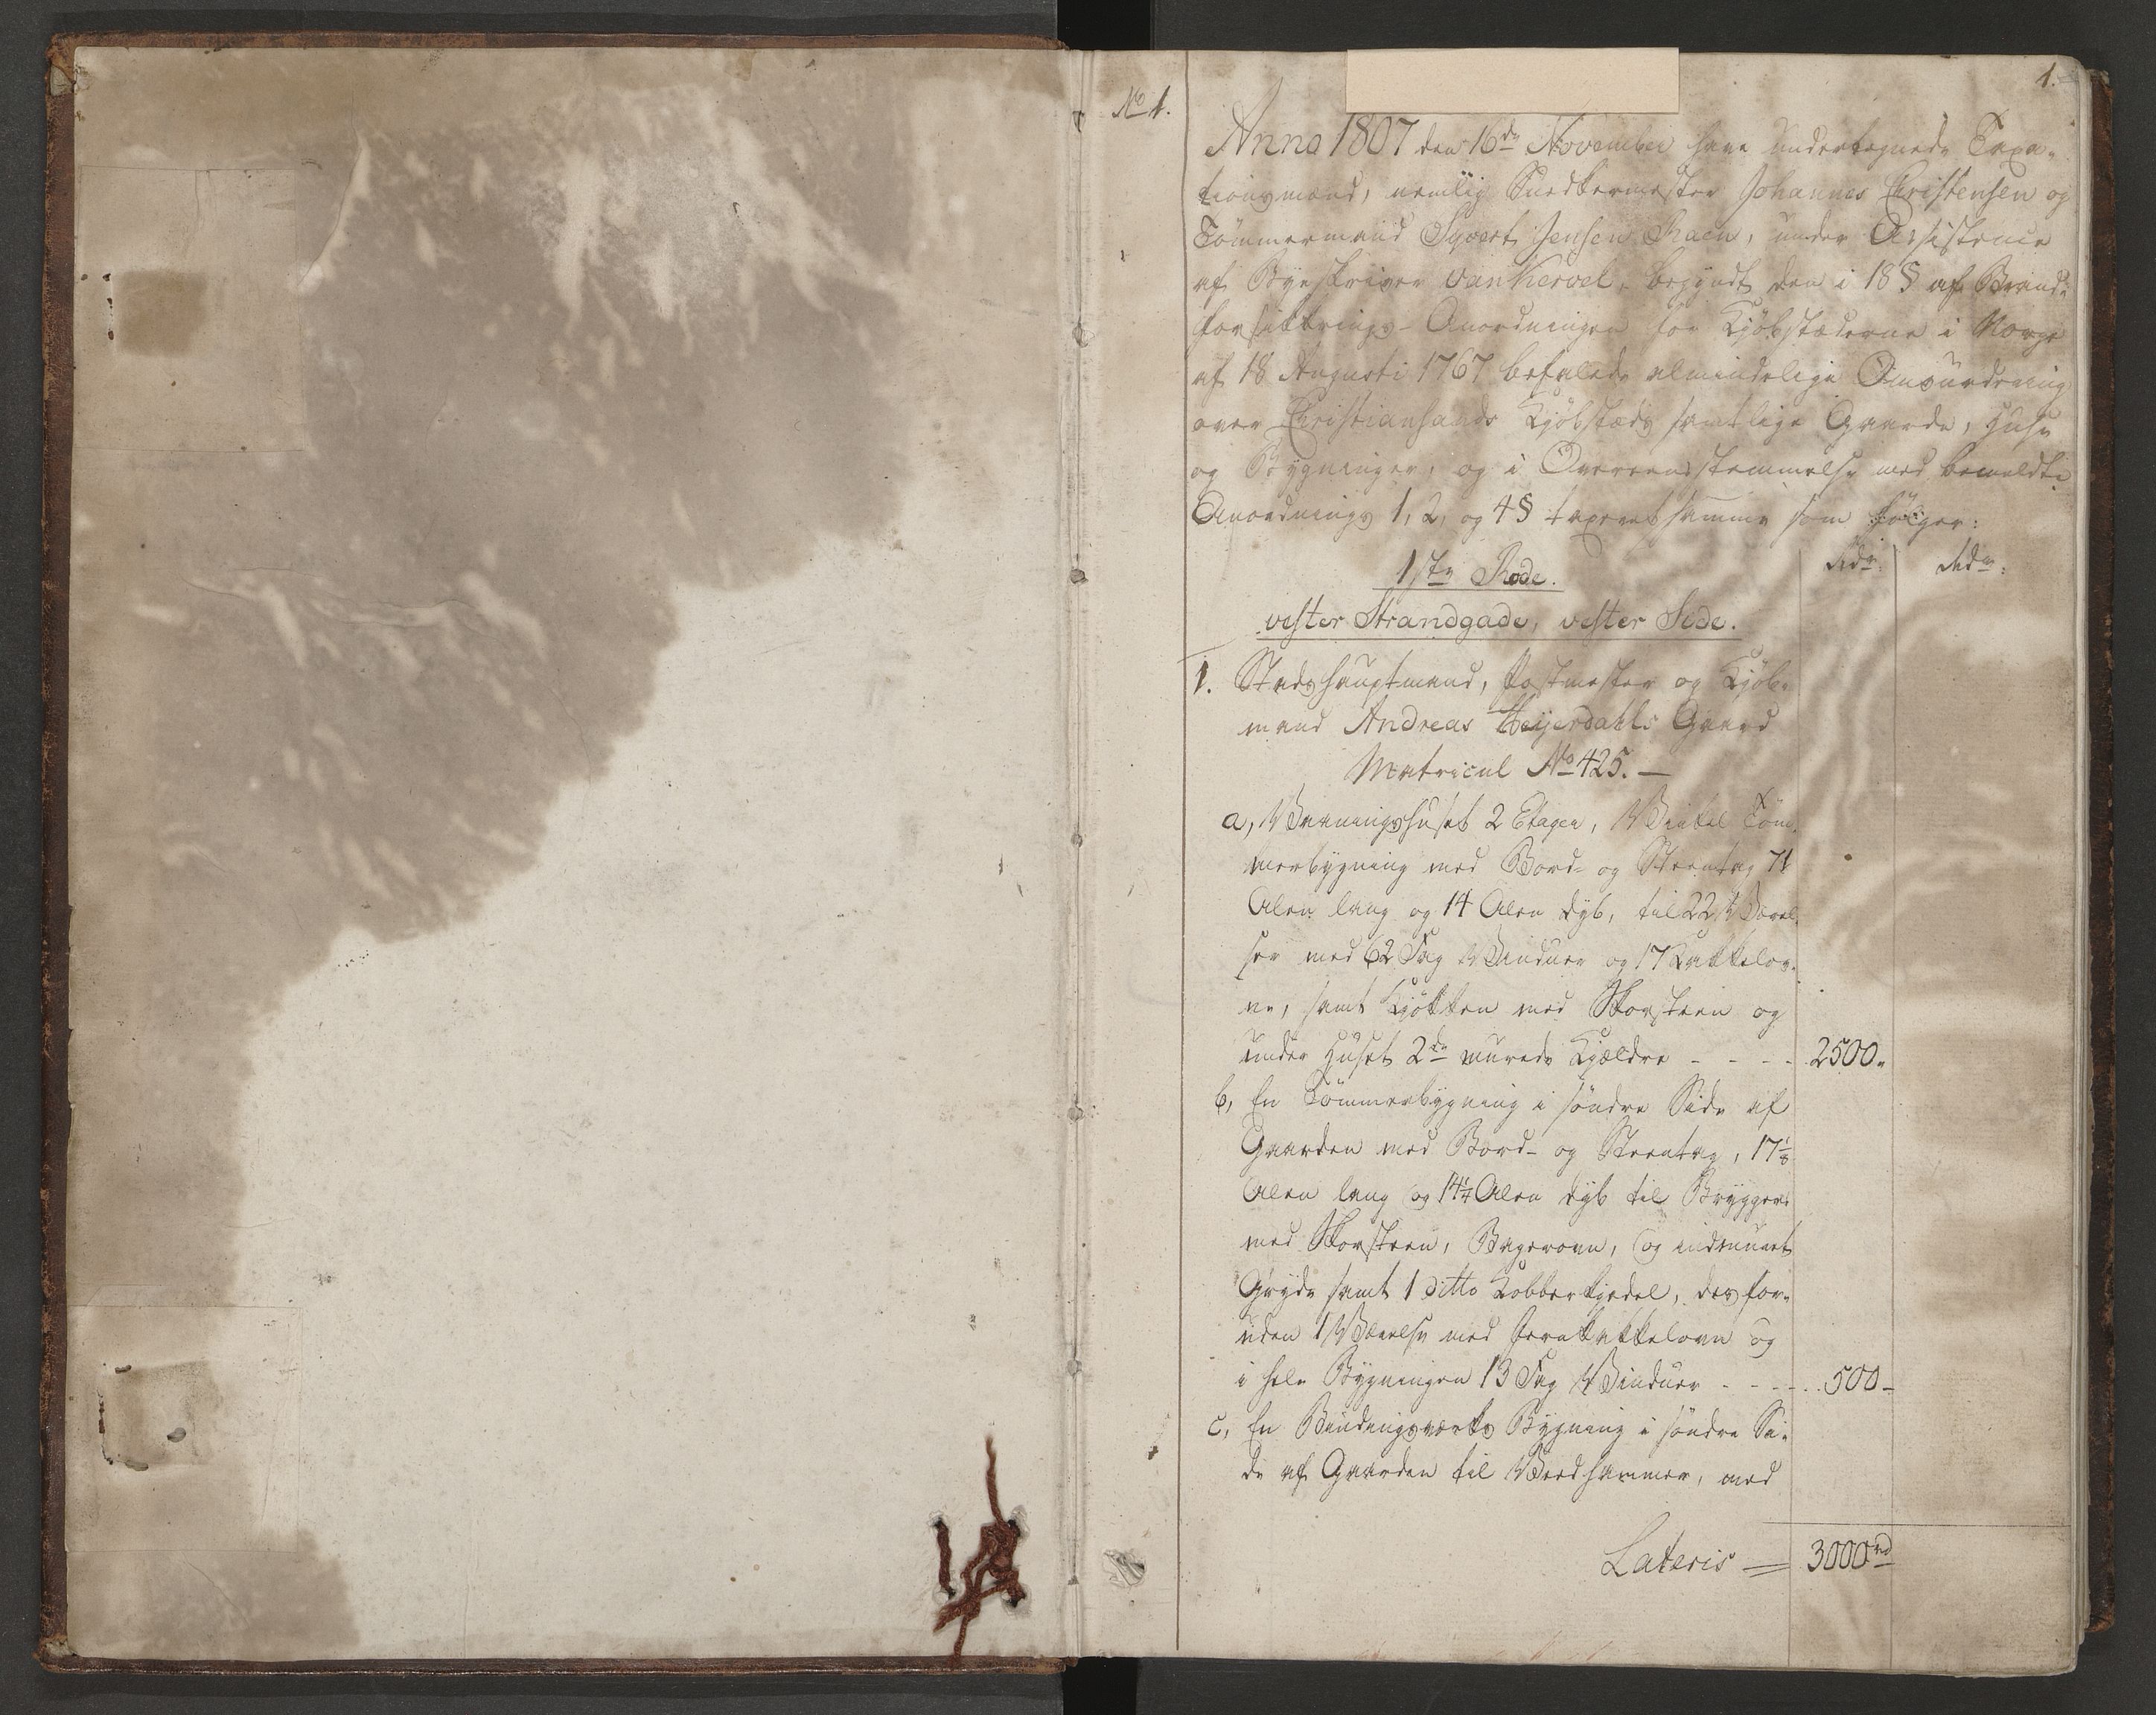 No 1.
1.
Anno 1807 den 16de November have undertegnede Taxa-
tionsmænd, nemlig Snedkermester Johannes Christensen og
Tømmermand Syvert Jensen, under Assistence
af Byeskriver van Kervel, begyndt den i 18 § af Brand-
forsikkrings-Anordningen for Kjöbstæderne i Norge
af 18 Augusti 1767 befalede almindelige Omvurdering
over Christiansands Kjöbstæds samtlige Gaarde, Huse
og Bygninger, og i Overeensstemmelse med bemeldte
Anordnings 1, 2, og 4 § taxeret samme som følger:
1ste Rode. Rdr: Rdr:
vester Strandgade, vester Side.
1. Stadshauptmand, Postmester og Kjöb-
mand Andreas Heyerdahls Gaard
Matricul No 425. —
a, Vaaningshuset 2 Etager, Vinkel Töm-
merbygning med Bord- og Steentag 71
Alen lang og 14 Alen dyb, til 22 Værel-
ser med 62 Fag Vinduer og 17 Kakkelov-
ne, samt Kjökken med Skorsteen og
under Huset 2de murede Kjældre - - - - 2500 -
b, En Tömmerbygning i söndre Side af
Gaarden med Bord- og Steentag, 17 1/8
Alen lang og 14 1/4 Alen dyb til Brygger-
med Skorsteen, Bagerovn, og indmuret
Gryde samt 1 ditto Kobberkjedel, desfor-
uden 1 Værelse med Jernkakkelovn og
i hele Bygningen 13 Fag Vinduer - - - - 500 -
c, En Bindingsværks Bygning i söndre Si-
de af Gaarden til Veedhammer, med
Lateris = 3000 rd